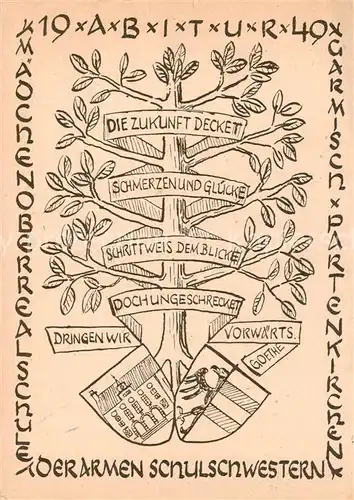 19 x A x B x I x T x U x R x 49
x MÄDCHENOBERREALSCHULE
x GARMISCH x PARTENKIRCHEN x
DIE ZUKUNFT DECKET
SCHMERZEN UND GLÜCKE
SCHRITTWEIS DEM BLICKE
DOCH UNGESCHRECKET
DRINGEN WIR
VORWÄRTS.
GOETHE
x DER ARMEN SCHULSCHWESTERN